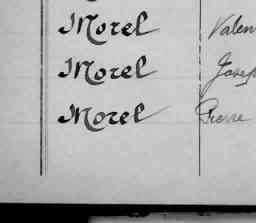 Morel Valen
Morel Josep
Morel Pierre